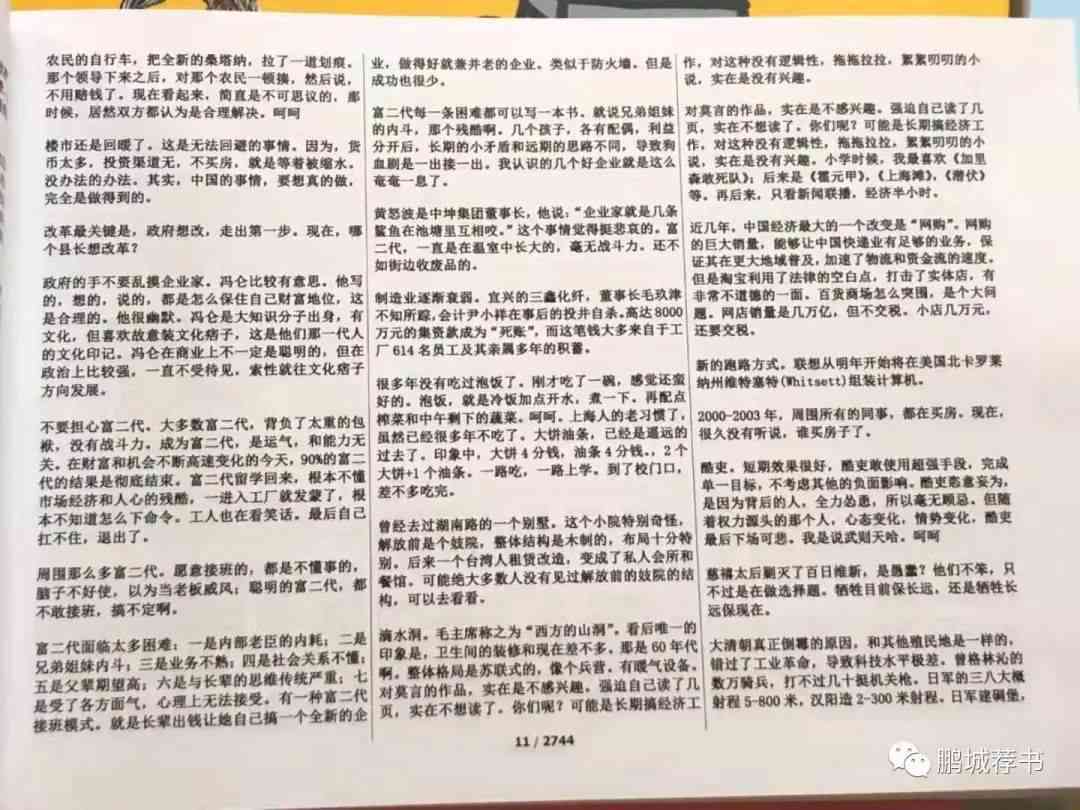 农民的自行车，把全新的桑塔纳，拉了一道划痕。
那个领导下来之后，对那个农民一顿揍，然后说，
不用赔钱了。现在看起来，简直是不可思议的，那
时候，居然双方都认为是合理解决。呵呵
楼市还是回暖了。这是无法回避的事情。因为，货
币太多，投资渠道无，不买房，就是等着被缩水。
没办法的办法。其实，中国的事情，要想真的做，
完全是做得到的。
改革最关键是，政府想改，走出第一步。现在，哪
个县长想改革？
政府的手不要乱摸企业家。冯仑比较有意思。他写
的，想的，说的，都是怎么保住自己财富地位，这
是合理的。他很幽默。冯仑是大知识分子出身，有
文化，但喜欢故意装文化痞子，这是他们那一代人
的文化印记。冯仑在商业上不一定是聪明的，但在
政治上比较强，一直不受待见，索性就往文化痞子
方向发展。
不要担心富二代。大多数富二代，背负了太重的包
袱，没有战斗力。成为富二代，是运气，和能力无
关。在财富和机会不断高速变化的今天，90%的富二
代的结果是彻底结束。富二代留学回来，根本不懂
市场经济和人心的残酷，一进入工厂就发蒙了，根
本不知道怎么下命令。工人也在看笑话。最后自己
扛不住，退出了。
周围那么多富二代。愿意接班的，都是不懂事的，
脑子不好使，以为当老板威风；聪明的富二代，都
不敢接班，搞不定啊。
富二代面临太多困难：一是内部老臣的内耗；二是
兄弟姐妹内斗；三是业务不熟；四是社会关系不懂；
五是父辈期望高；六是与长辈的思维传统严重；七
是受了各方面气，心理上无法接受。有一种富二代
接班模式。就是长辈出钱让她自己搞一个全新的企
业，做得好就兼并老的企业。类似于防火墙。但是
成功也很少。
富二代每一条困难都可以写一本书。就说兄弟姐妹
的内斗，那个残酷啊。几个孩子，各有配偶，利益
分开后，长期的小矛盾和远期的思路不同，导致狗
血剧是一出接一出。我认识的几个好企业就是这么
奄奄一息了。
黄怒波是中坤集团董事长，他说：“企业家就是几条
鲨鱼在池塘里互相咬。”这个事情觉得挺悲哀的。富
二代，一直是在温室中长大的，毫无战斗力。还不
如街边收废品的。
制造业逐渐衰弱。宜兴的三鑫化纤，董事长毛玖津
不知所踪，会计尹小祥在事后的投井自杀。高达8000
万元的集资款成为“死账”，而这笔钱大多来自于工
厂614名员工及其亲属多年的积蓄。
很多年没有吃过泡饭了。刚才吃了一碗，感觉还蛮
好的。泡饭，就是冷饭加点开水，煮一下。再配点
榨菜和中午剩下的蔬菜。呵呵。上海人的老习惯了，
虽然已经很多年不吃了。大饼油条，已经是遥远的
过去了。印象中，大饼4分钱，油条4分钱。，2个
大饼+1个油条。一路吃，一路上学。到了校门口，
差不多吃完。
曾经去过湖南路的一个别墅。这个小院特别奇怪，
解放前是个妓院，整体结构是木制的，布局十分特
别。后来一个台湾人租赁改造，变成了私人会所和
餐馆。可能绝大多数人没有见过解放前的妓院的结
构，可以去看看。
滴水洞。毛主席称之为“西方的山洞”。看后唯一的
印象是，卫生间的装修和现在差不多。那是60年代
啊。整体格局是苏联式的，像个兵营。有暖气设备。
对莫言的作品，实在是不感兴趣。强迫自己读了几
页，实在不想读了。你们呢？可能是长期搞经济工
作，对这种没有逻辑性，拖拖拉拉，絮絮叨叨的小
说，实在是没有兴趣。
对莫言的作品，实在是不感兴趣。强迫自己读了几
页，实在不想读了。你们呢？可能是长期搞经济工
作，对这种没有逻辑性，拖拖拉拉，絮絮叨叨的小
说，实在是没有兴趣。小学时候，我最喜欢《加里
森敢死队》；后来是《霍元甲》，《上海滩》，《潜伏》
等。再后来，只看新闻联播，经济半小时。
近几年，中国经济最大的一个改变是“网购”。网购
的巨大销量，能够让中国快递业有足够的业务，保
证其在更大地域普及，加速了物流和资金流的速度。
但是淘宝利用了法律的空白点，打击了实体店，有
非常不道德的一面。百货商场怎么突围，是个大问
题。网店销量是几万亿，但不交税。小店几万元，
还要交税。
新的跑路方式。联想从明年开始将在美国北卡罗莱
纳州维特塞特(Whitsett)组装计算机。
2000-2003年，周围所有的同事，都在买房。现在，
很久没有听说，谁买房子了。
酷吏。短期效果很好，酷吏敢使用超强手段，完成
单一目标，不考虑其他的负面影响。酷吏恣意妄为，
是因为背后的人，全力怂恿，所以毫无顾忌。但随
着权力源头的那个人，心态变化，情势变化，酷吏
最后下场可悲。我是说武则天哈。呵呵
慈禧太后剿灭了百日维新，是愚蠢？他们不笨，只
不过是在做选择题。牺牲目前保长远，还是牺牲长
远保现在。
大清朝真正倒霉的原因，和其他殖民地是一样的，
错过了工业革命，导致科技水平极差。曾格林沁的
数万骑兵，打不过几十挺机关枪。日军的三八大概
射程5-800米，汉阳造2-300米射程。日军建碉堡，
11 / 2744
鹏城荐书